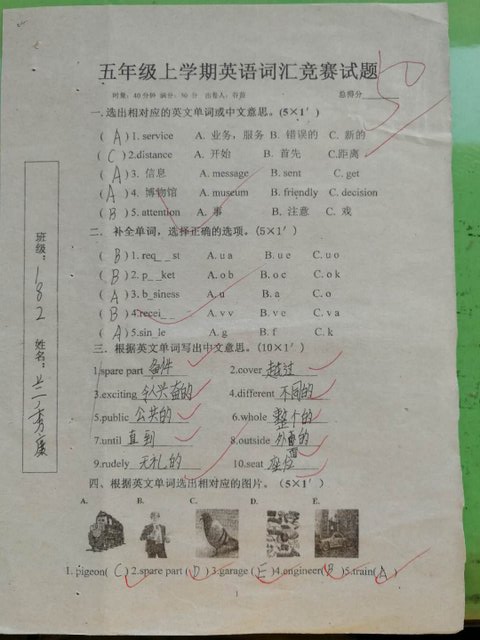 五年级上学期英语词汇竞赛试题
50
时量：40分钟 满分：50分 出卷人：
总得分
一.选出相对应的英文单词或中文意思。(5×1′)
(A) 1. service A. 业务，服务 B. 错误的 C. 新的
(C) 2.distance A. 开始 B. 首先 C.距离
(A) 3. 信息 A. message B. sent C. get
(A) 4. 博物馆 A. museum B. friendly C. decision
(B) 5. attention A. 事 B. 注意 C. 戏
二．补全单词，选择正确的选项。(5×1′)
(B) 1. req_ _st A. u a B. u e C. u o
(B) 2. p_ _ket A. o b B. o c C. o k
(A) 3. b_siness A. u B. a C. o
(B) 4.recei_ _ A. v v B. v e C. v a
(A) 5.sin_le A. g B. f C. k
三．根据英文单词写出中文意思。(10×1′)
1.spare part 备件 2.cover 越过
3.exciting 令人兴奋的 4.different 不同的
5.public 公共的 6.whole 整个的
7.until 直到 8.outside 外面的
9.rudely 无礼的 10.seat 座位
四、根据英文单词选出相对应的图片。（5×1′）
A. B. C. D. E.
1. pigeon(C) 2.spare part (D) 3.garage (E) 4.engineer(B) 5.train(A)
1
班级：182 姓名：